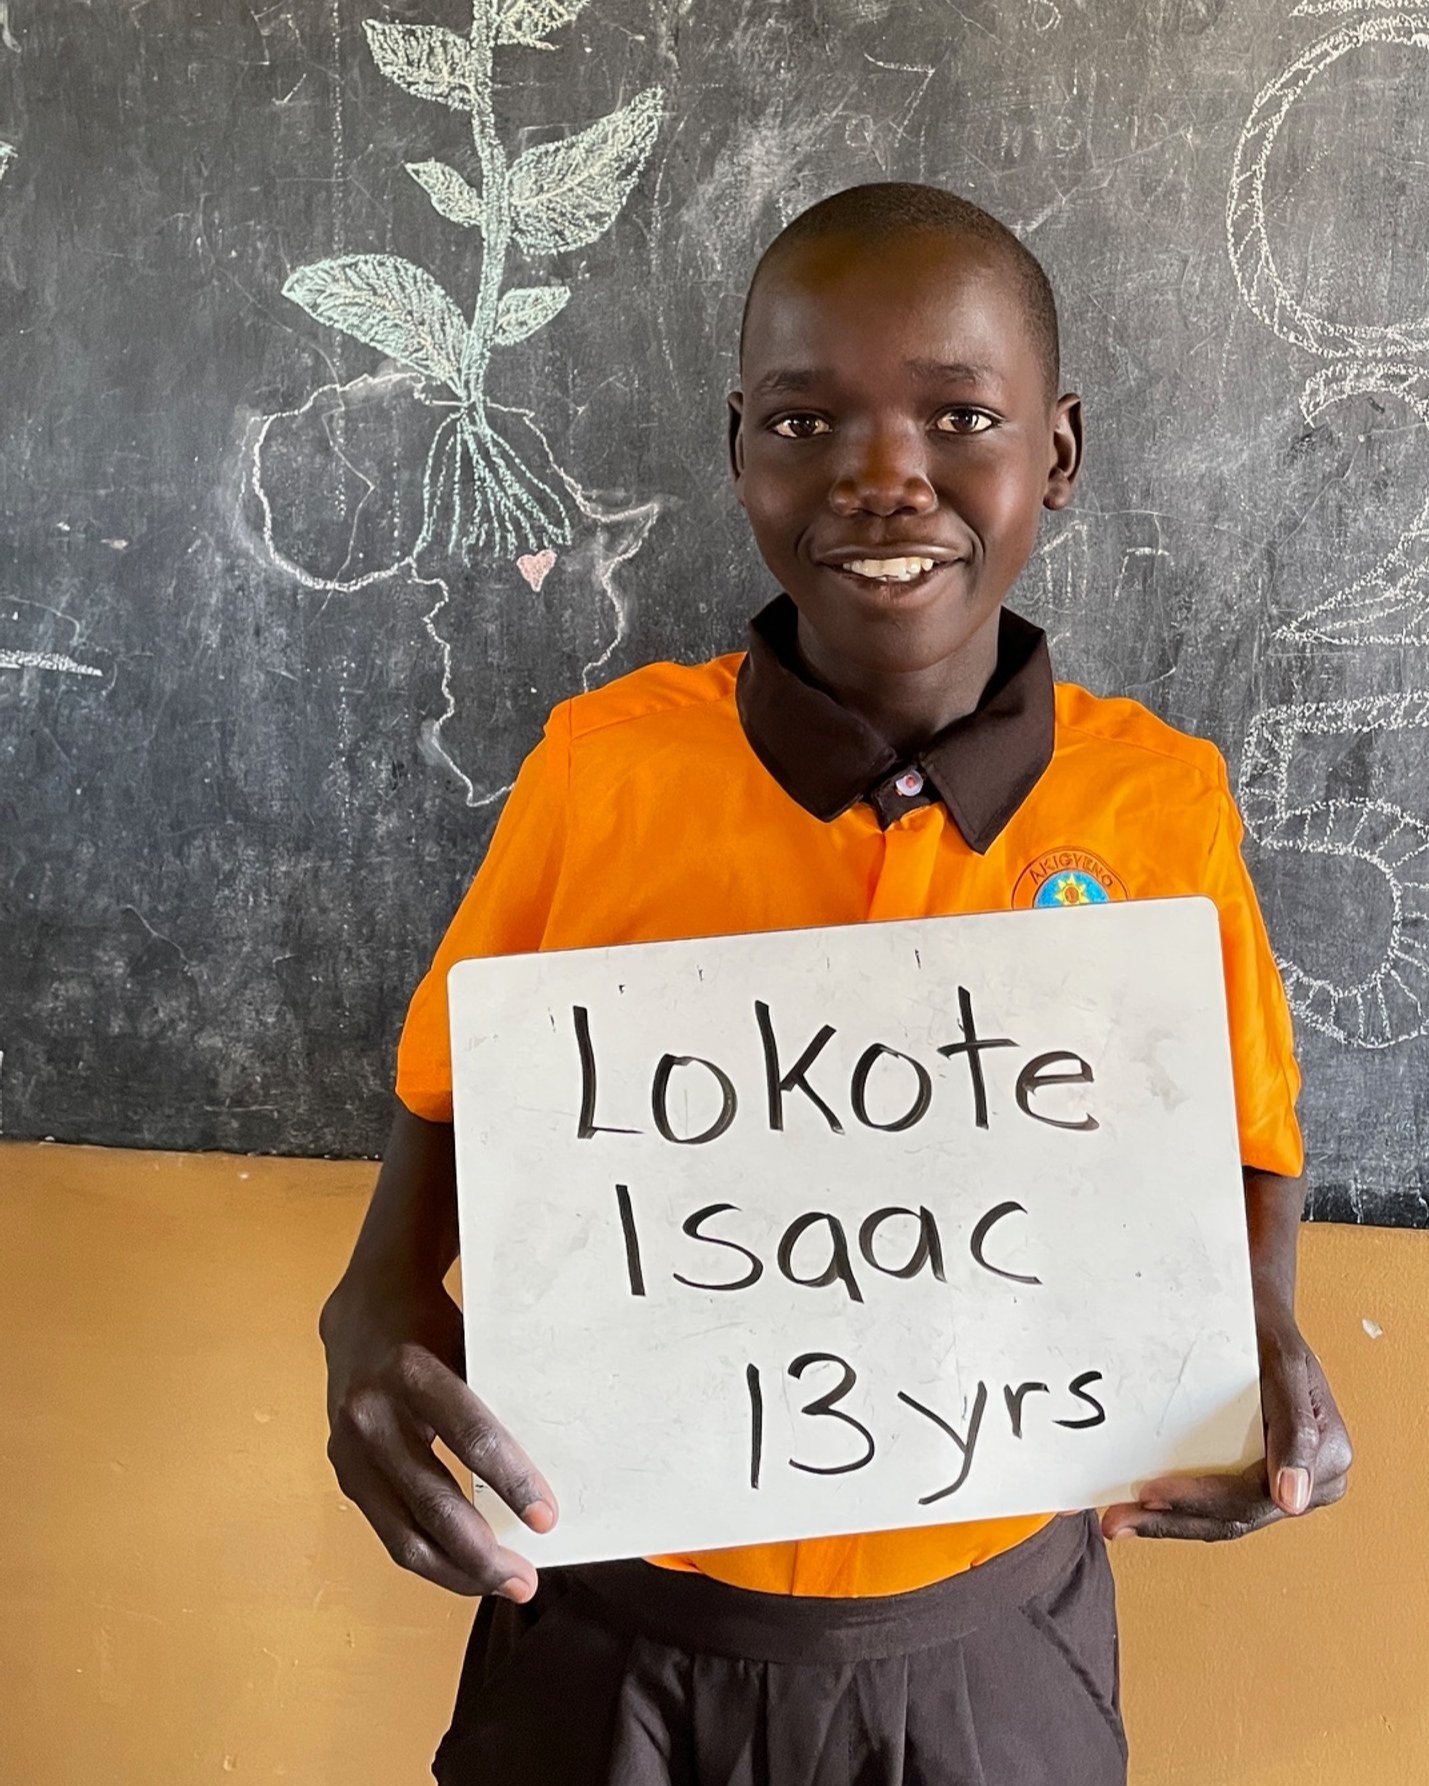 AKIGYENO
Lokote
Isaac
13 yrs